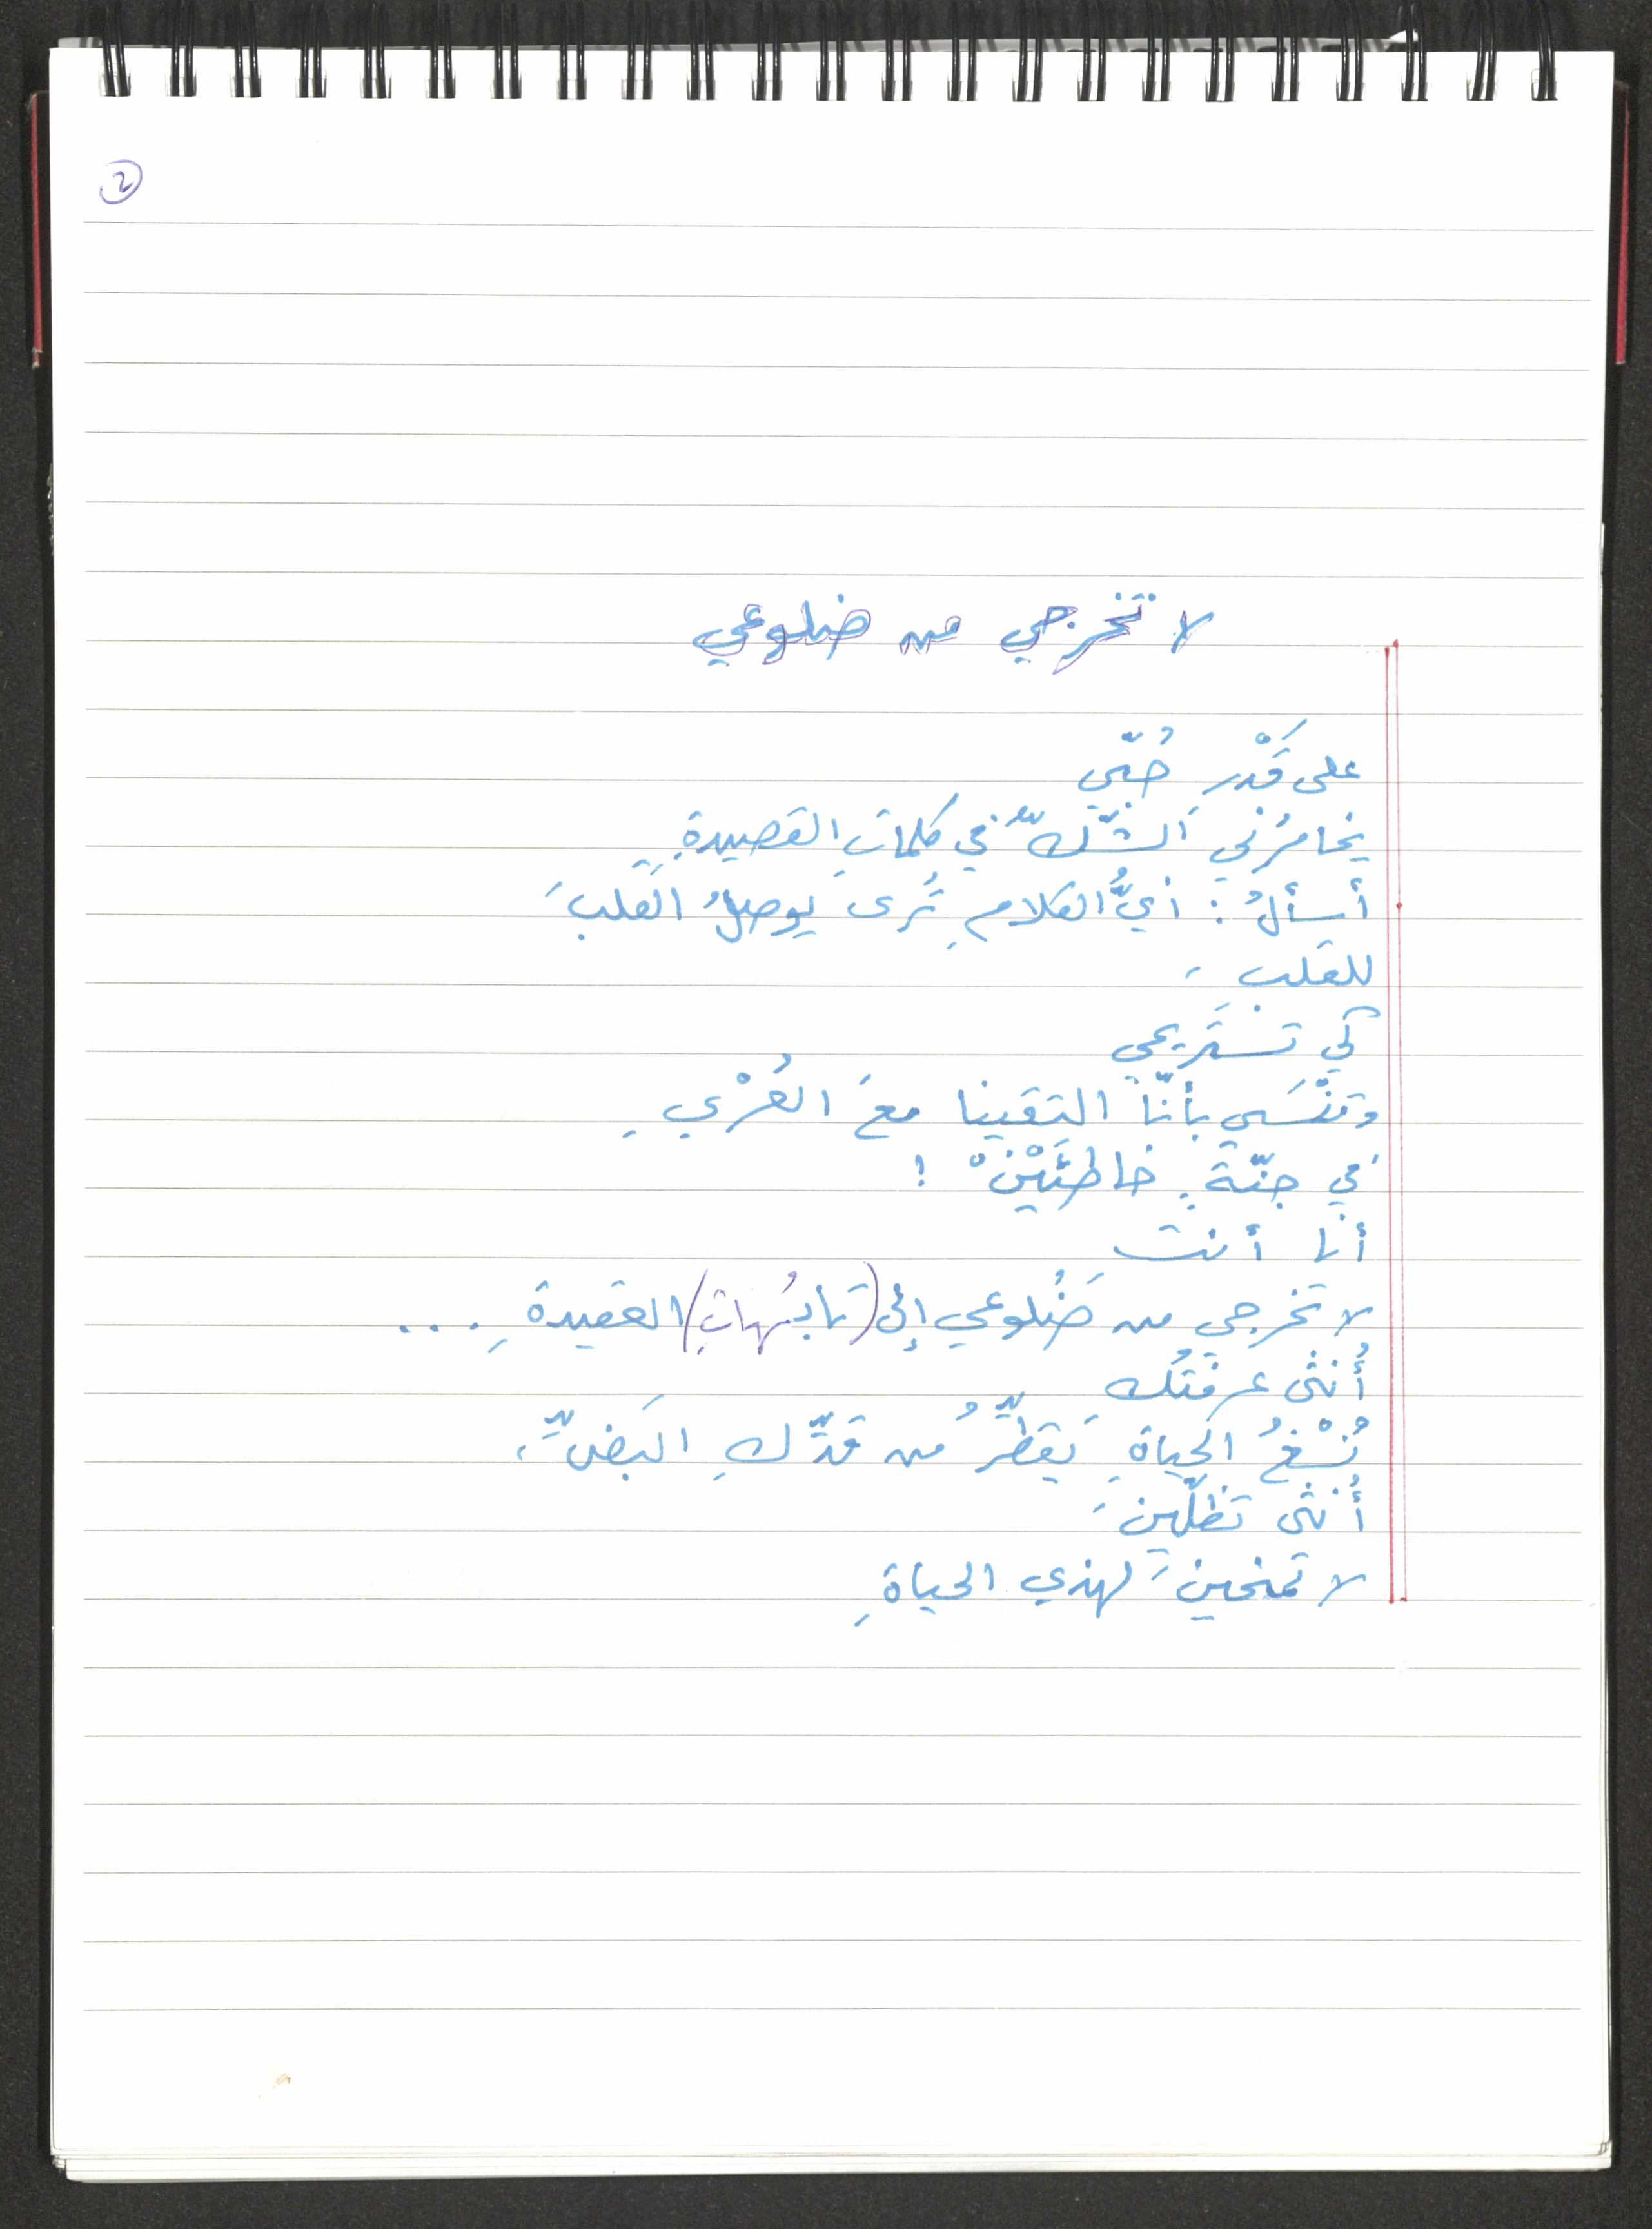 2
لا تخرجي من ضلوعي
على قَدْرِ حُبّي
يخامرُني الشّكُّ في كلماتِ القصيدةِ
أسألُ : أيُّ الكلامِ تُرى يوصلُ القلبَ
للقلب
كَي تستَريحي
وتنْسَي بأنّا التقينا معَ العُرْيِ
في جنّةٍ خاطئَيْنْ !
أنا أنت
لا تخرجي من ضُلوعي إلى (تابُهاتِ) العقيدةِ ...
أُنثى عرفتُكِ
نُسْغُ الحياةِ يَقطّرُ من قدِّكِ البَضِّ ،
أُنثى تظلّينَ
لا تمنحينَ لهذي الحياةِ